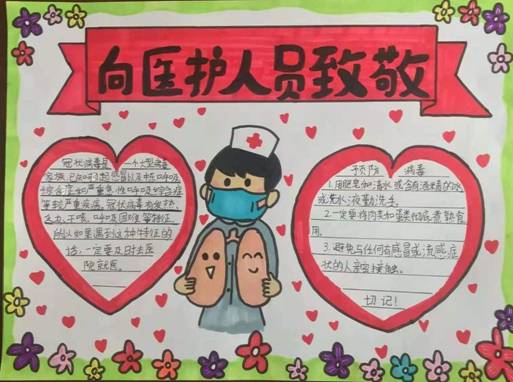 向医护人员致敬
冠状病毒是一个大型病毒
家族,已知可引起感冒以及中东呼吸
综合征和严重急性呼吸综合征
等较严重疾病。冠状病毒有发热、
乏力、干咳、呼吸困难等特征。
所以如果遇到这种特征的
话,一定要及时去医
院就医。
预防病毒
1.用肥皂和清水或含有酒精的
洗手液勤洗手。
2.一定要将肉类和蛋类彻底煮熟食
用。
3.避免与任何有感冒或流感症
状的人亲密接触。
切记!